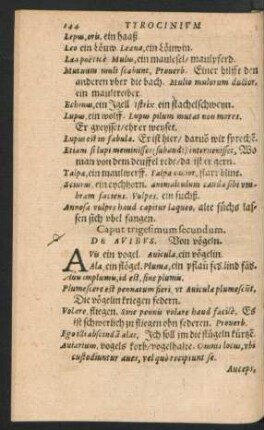 144 TYROCINIVM
Lepus, oris, ein haaß.
Leo ein löuw. Leana, ein löuwin.
Laa poeticè Mulus, ein maulesel/ maulpferd.
Mutuum muli scabunt, Prouerb. Einer hilfft den
anderen vber die bach. Mulio mulorum ductor,
ein maultreiber.
Echinus, ein Igell istrix ein stachelschweyn.
Lupus, ein wolff. Lupus pilum mutat non mores.
Er greyßet/ ehrer weyßet.
Lupus est in fabula. Er ist hier/ daruo wir sprechē.
Etiam si lupi meminisses; subaudi; interuenisset, Wo
man von dem teuffel rede/ da ist er gern.
Talpa, ein maulwerff. Talpa cæcior, starr blind.
Sciurus, ein eychhorn. animolculum cauda sibi vm-
bram faciens. Vulpes, ein fuchß.
Annosa vulpes haud capitur laqueo, alte füchs las-
sen sich vbel fangen.
Caput trigesimum secundum.
DE AVIBVS. Von vögeln.
AVis ein vogel. Auicula, ein vögelin.
Ala, ein flögel. Pluma, ein pflaum feš. sind fäš.
Auu implumis, id est, sine plumis.
Plumescere est pennatum fieri, vt Auicula plumescūt,
Die vögelin kriegen federn.
Volare, fliegen. Sine pennis volare haud facilè. Es
ist schwerlich zu fliegen ohn federen. Prouerb.
Ego tibi abscindā alas, Ich soll im die flügeln kürtzē.
Auiarium, vogels korb/ vogelhalte. Omnis locus, vbi
custodiuntur aues, vel quò recipiunt se.
Auceps,